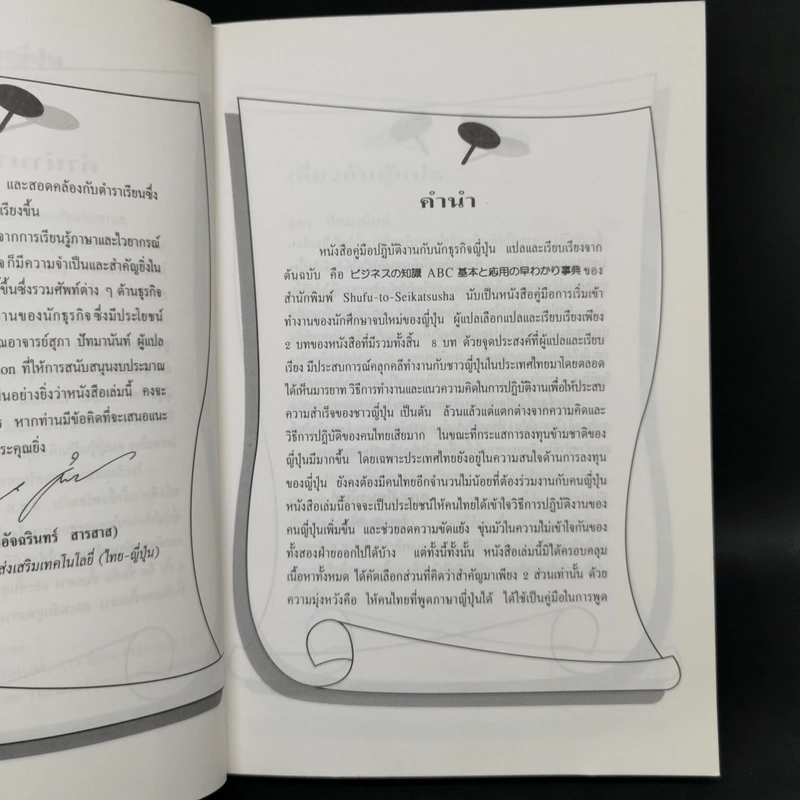 และสอดคล้องกับตำราเรียนซึ่ง
เรียงขึ้น
จากการเรียนรู้ภาษาและไวยากรณ์
ก็มีความจำเป็นและสำคัญยิ่งใน
ขึ้นซึ่งรวมศัพท์ต่าง ๆ ด้านธุรกิจ
งานของนักธุรกิจ ซึ่งมีประโยชน์
ณอาจารย์สุภา ปัทมานันท์ ผู้แปล
on ที่ให้การสนับสนุนงบประมาณ
ป็นอย่างยิ่งว่าหนังสือเล่มนี้ คงจะ
หากท่านมีข้อคิดที่จะเสนอแนะ
ระคุณยิ่ง
อัจฉรินทร์ สารสาส)
ส่งเสริมเทคโนโลยี่ (ไทย-ญี่ปุ่น)
คำนำ
หนังสือคู่มือปฏิบัติงานกับนักธุรกิจญี่ปุ่น แปลและเรียบเรียงจาก
ต้นฉบับ คือ ビジネスの知識 ABC 基本と応用の早わかり事典 ของ
สำนักพิมพ์ Shufu-to-Seikatsusha นับเป็นหนังสือคู่มือการเริ่มเข้า
ทำงานของนักศึกษาจบใหม่ของญี่ปุ่น ผู้แปลเลือกแปลและเรียบเรียงเพียง
2 บทของหนังสือที่มีรวมทั้งสิ้น 8 บท ด้วยจุดประสงค์ที่ผู้แปลและเรียบ
เรียง มีประสบการณ์คลุกคลีทำงานกับชาวญี่ปุ่นในประเทศไทยมาโดยตลอด
ได้เห็นมารยาท วิธีการทำงานและแนวความคิดในการปฏิบัติงานเพื่อให้ประสบ
ความสำเร็จของชาวญี่ปุ่น เป็นต้น ล้วนแล้วแต่แตกต่างจากความคิดและ
วิธีการปฏิบัติของคนไทยเสียมาก ในขณะที่กระแสการลงทุนข้ามชาติของ
ญี่ปุ่นมีมากขึ้น โดยเฉพาะประเทศไทยยังอยู่ในความสนใจด้านการลงทุน
ของญี่ปุ่น ยังคงต้องมีคนไทยอีกจำนวนไม่น้อยที่ต้องร่วมงานกับคนญี่ปุ่น
หนังสือเล่มนี้อาจจะเป็นประโยชน์ให้คนไทยได้เข้าใจวิธีการปฏิบัติงานของ
คนญี่ปุ่นเพิ่มขึ้น และช่วยลดความขัดแย้ง ขุ่นมัวในความไม่เข้าใจกันของ
ทั้งสองฝ่ายออกไปได้บ้าง แต่ทั้งนี้ทั้งนั้น หนังสือเล่มนี้มิได้ครอบคลุม
เนื้อหาทั้งหมด ได้คัดเลือกส่วนที่คิดว่าสำคัญมาเพียง 2 ส่วนเท่านั้น ด้วย
ความมุ่งหวังคือ ให้คนไทยที่พูดภาษาญี่ปุ่นได้ ได้ใช้เป็นคู่มือในการพูด